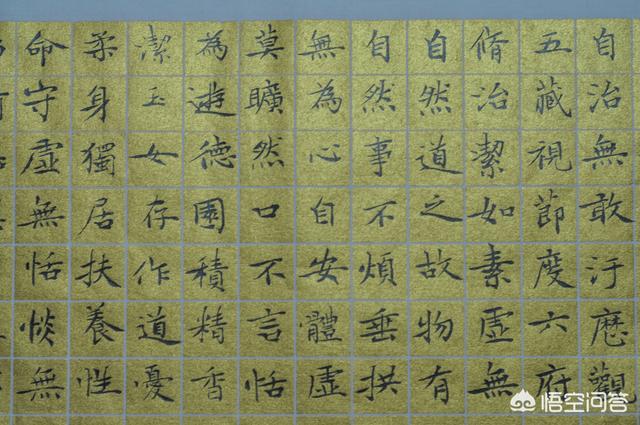 自治無敢汙厯觀
五藏視節度六府
脩治潔如素虛無
自然道之故物有
自然事不煩垂拱
無為心自安體虛
莫曠然口不言恬
為遊德園積精香
潔玉女存作道憂
柔身獨居扶養性
命守虛無恬惔無
悟空问答